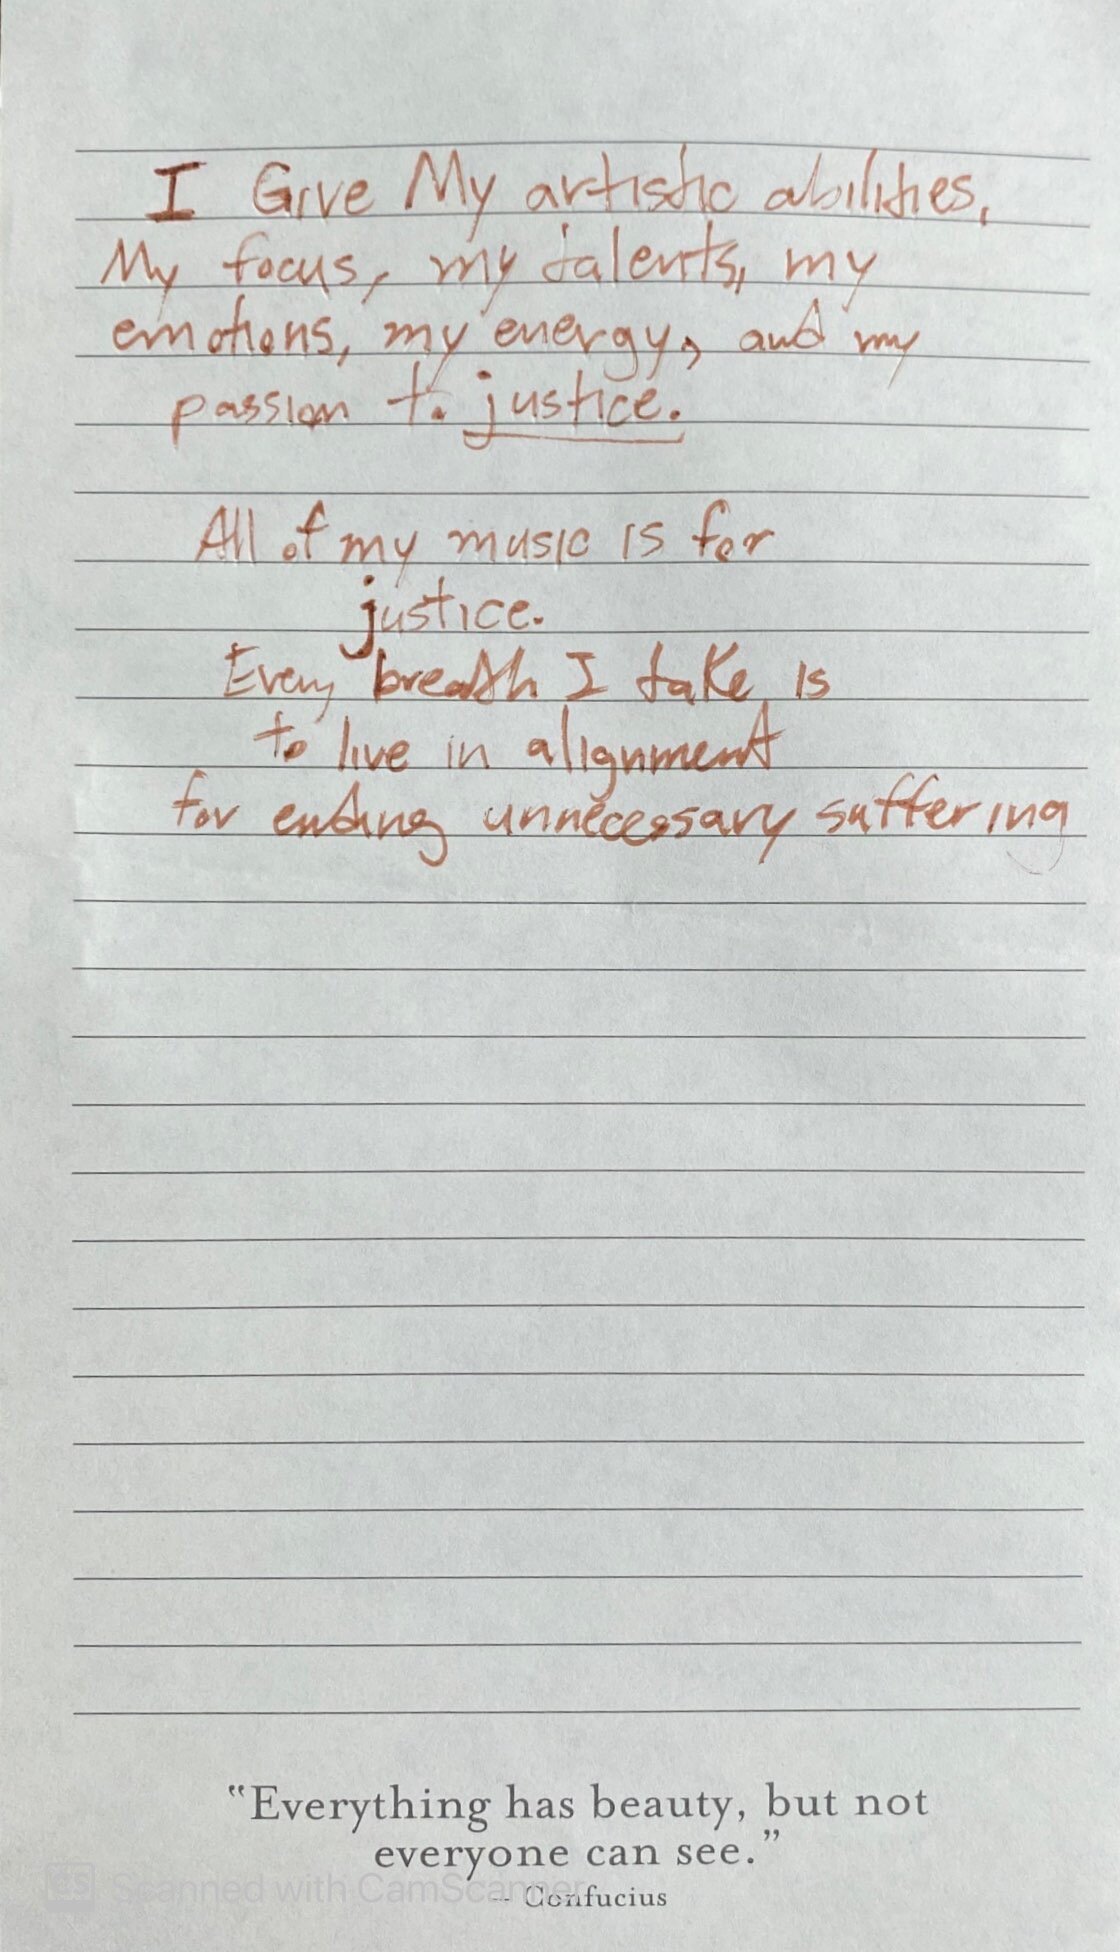 I Give My artistic abilities,
My focus, my talents, my
emotions, my energy, and my
passion to justice.
All of my music is for
justice.
Every breath I take is
to live in alignment
for ending unnecessary suffering
"Everything has beauty, but not
everyone can see."
-- Confucius
CS Scanned with CamScanner